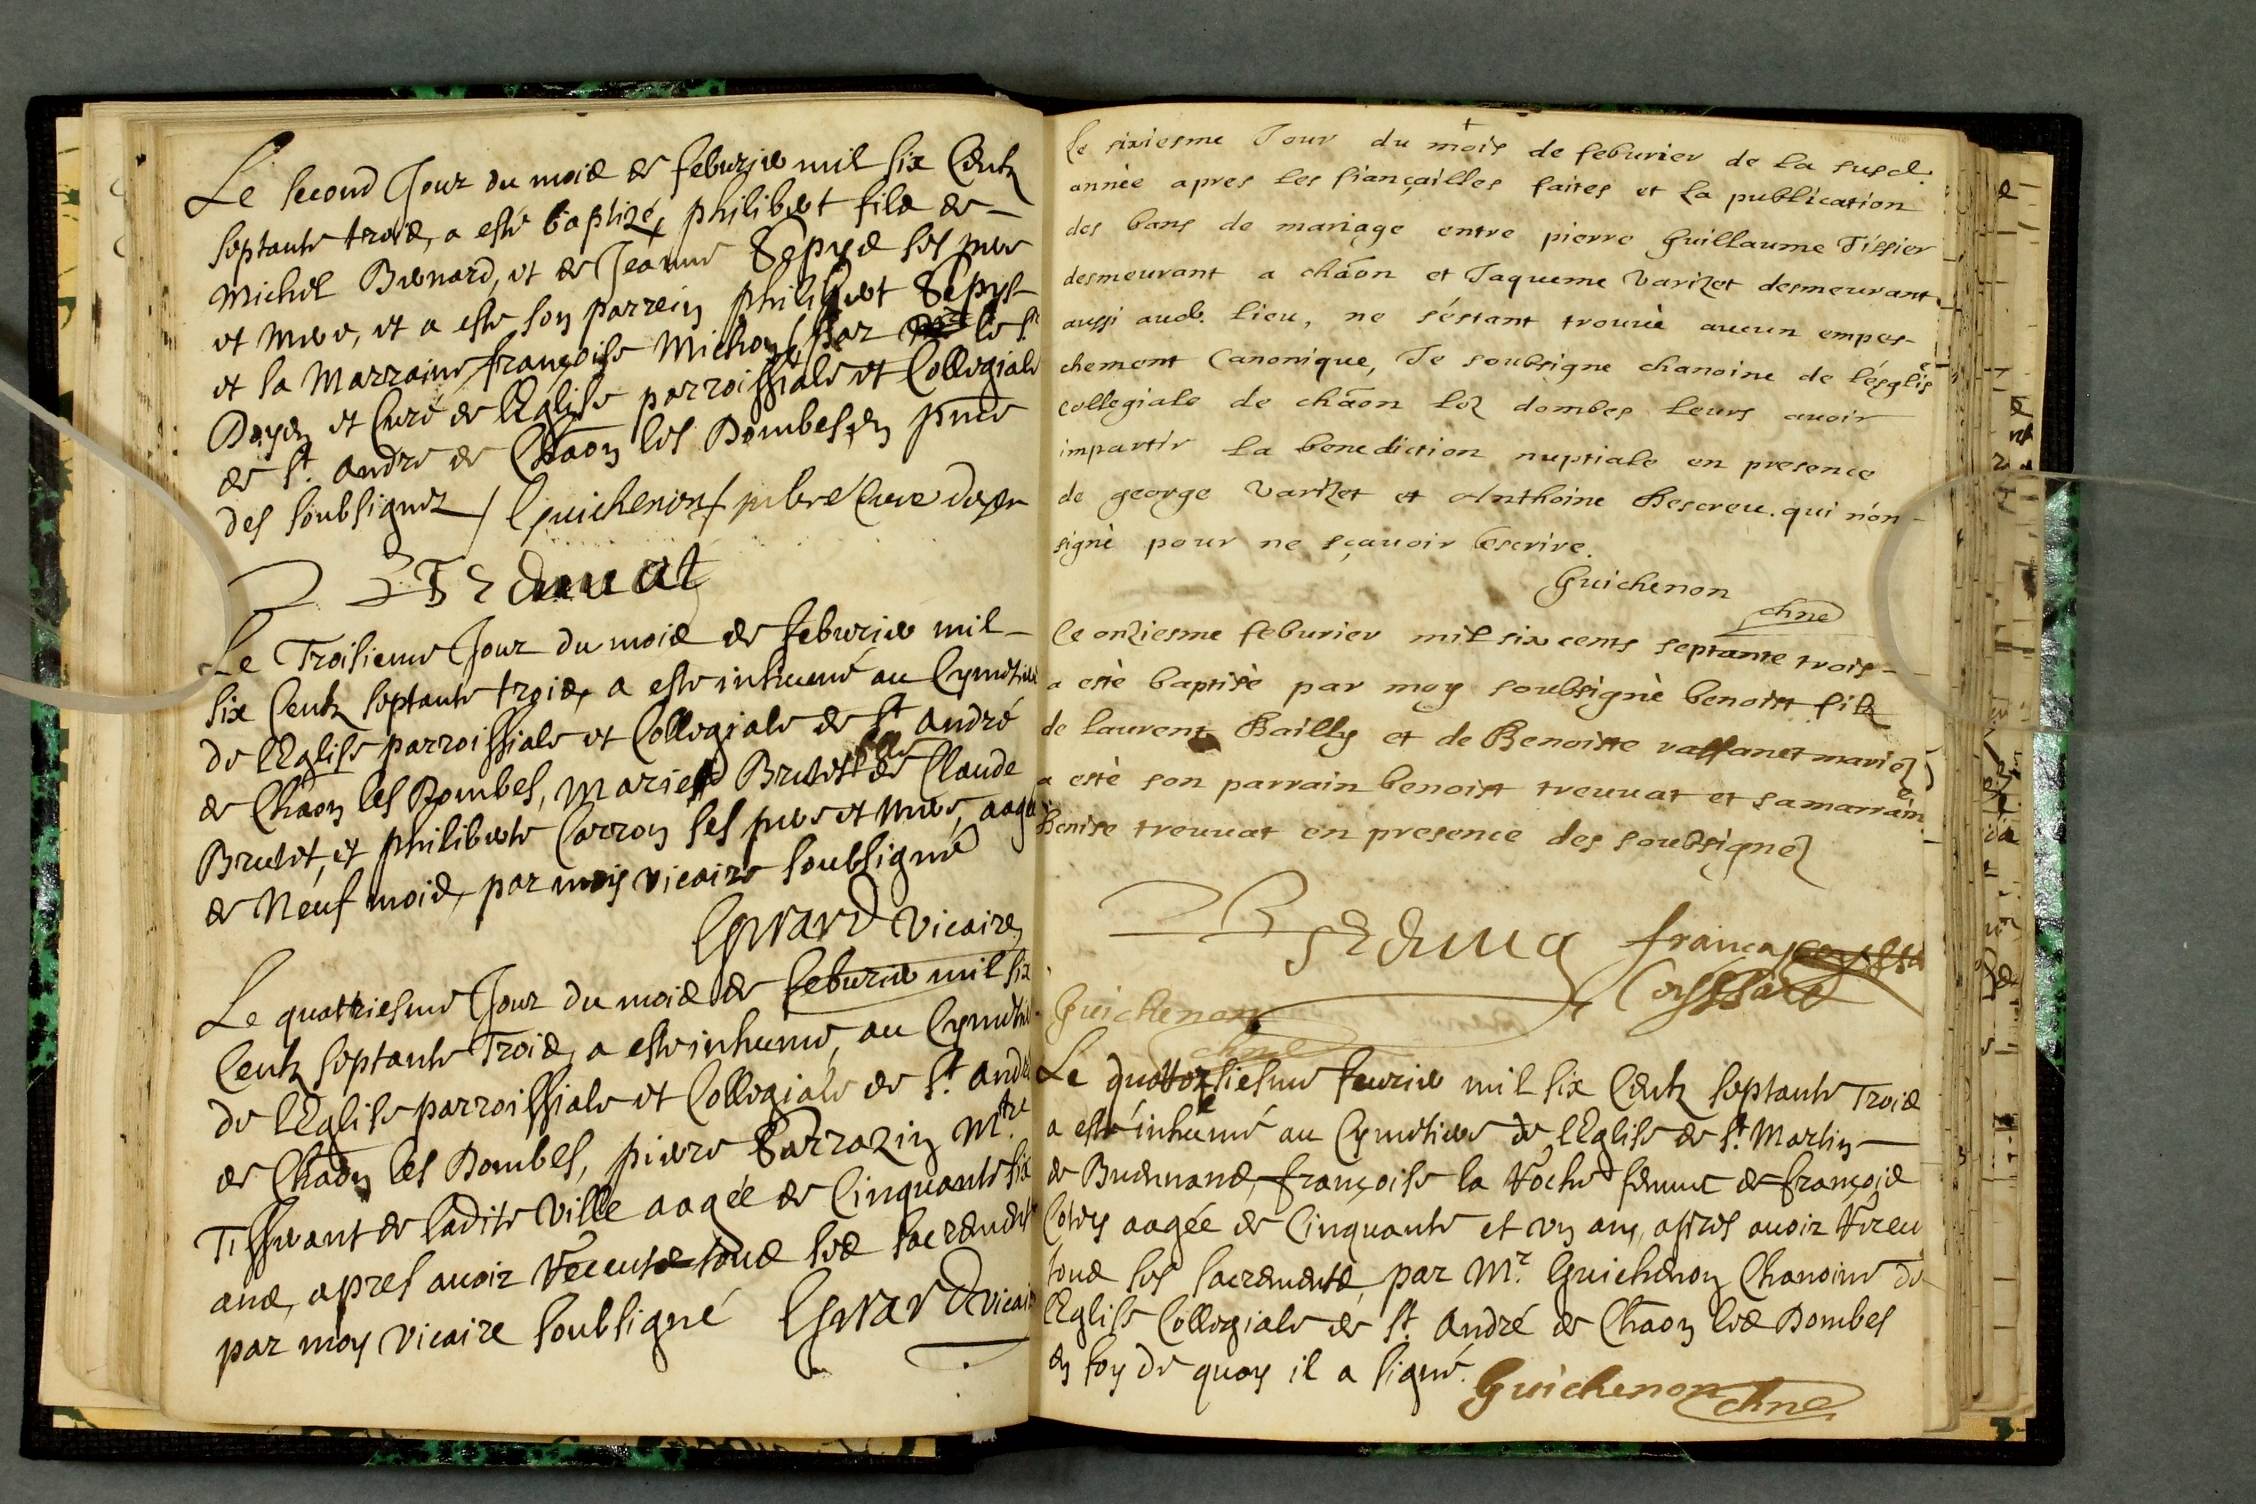 Le second Jour du mois de feburier mil six Centz
septante trois, a esté baptizé, philibert filz de
Michel Bernard, et de Jeanne Sepys ses pere
et mere, et a este son parrein philibert Sepys
et la Marraine françoise Michon, par le Sr
Doyen et Curé de l'Eglise parroissiale et Collegiale
de St. André de Chãon les Dombes, en pñce
des soubsignez / Guichenon pbre Cure doyen
Treuuat
Le Troisieme Jour du mois de feburier mil
six Centz septante trois, a este inhumé au Cymetiere
de l'Eglise parroissiale et Collegiale de St André
de Chãon les Dombes, Marie Brulet fille de Claude
Brulet, et philiberte Carron ses pere et mere, aagée
de Neuf mois, par moy vicaire soubsigné
Gerard vicaire
Le quattriesme Jour du mois de feburier mil six
Centz septante Trois, a este inhumé, au Cymetiere
de l'Eglise parroissiale et Collegiale de St. André
de Chãon les Dombes, pierre Sarrazin Mtre
Tisserant de ladite Ville aagée de Cinquante six
ans, apres auoir Receu tous les sacrements
par moy vicaire soubsigné Gerard vicaire
le sixiesme Jour du mois de feburier de la susd.
année apres les fiançailles faites et la publication
des bans de mariage entre pierre Guillaume Tissier
desmeurant a chãon et Jaqueme Varizet desmeurant
aussi aud. lieu, ne s'éstant trouuè aucun empes-
chement Canonique, Je soubsigne chanoine de l'ésglise
collegiale de chãon lez dombes leurs auoir
impartir la benediction nuptiale en presence
de george Varizet et Anthoine Bescreu. qui n'on
signè pour ne sçauoir escrire.
Guichenon
chne
le onziesme feburier mil six cents septante trois
a estè baptisè par moy soubsignè benoist filz
de laurent Bailly et de Benoiste vassanet mariez
a estè son parrain benoist treuuat et sa marraine
Benite treuuat en presence des soubsignez
Treuua
franca
Coyssard
Guichenon
chne
Le quattorsiesme feurier mil six Centz septante Trois
a esté inhumé au Cymetiere de l'Eglise de St. Martin
de Buenand, françoise la Roche femme de françois
Coley aagée de Cinquante et un ans, apres auoir Receu
tous les sacrements, par Mr. Guichenon Chanoine de
l'Eglise Collegiale de St. André de Chãon les Dombes
en foy de quoy il a signé.
Guichenon chne